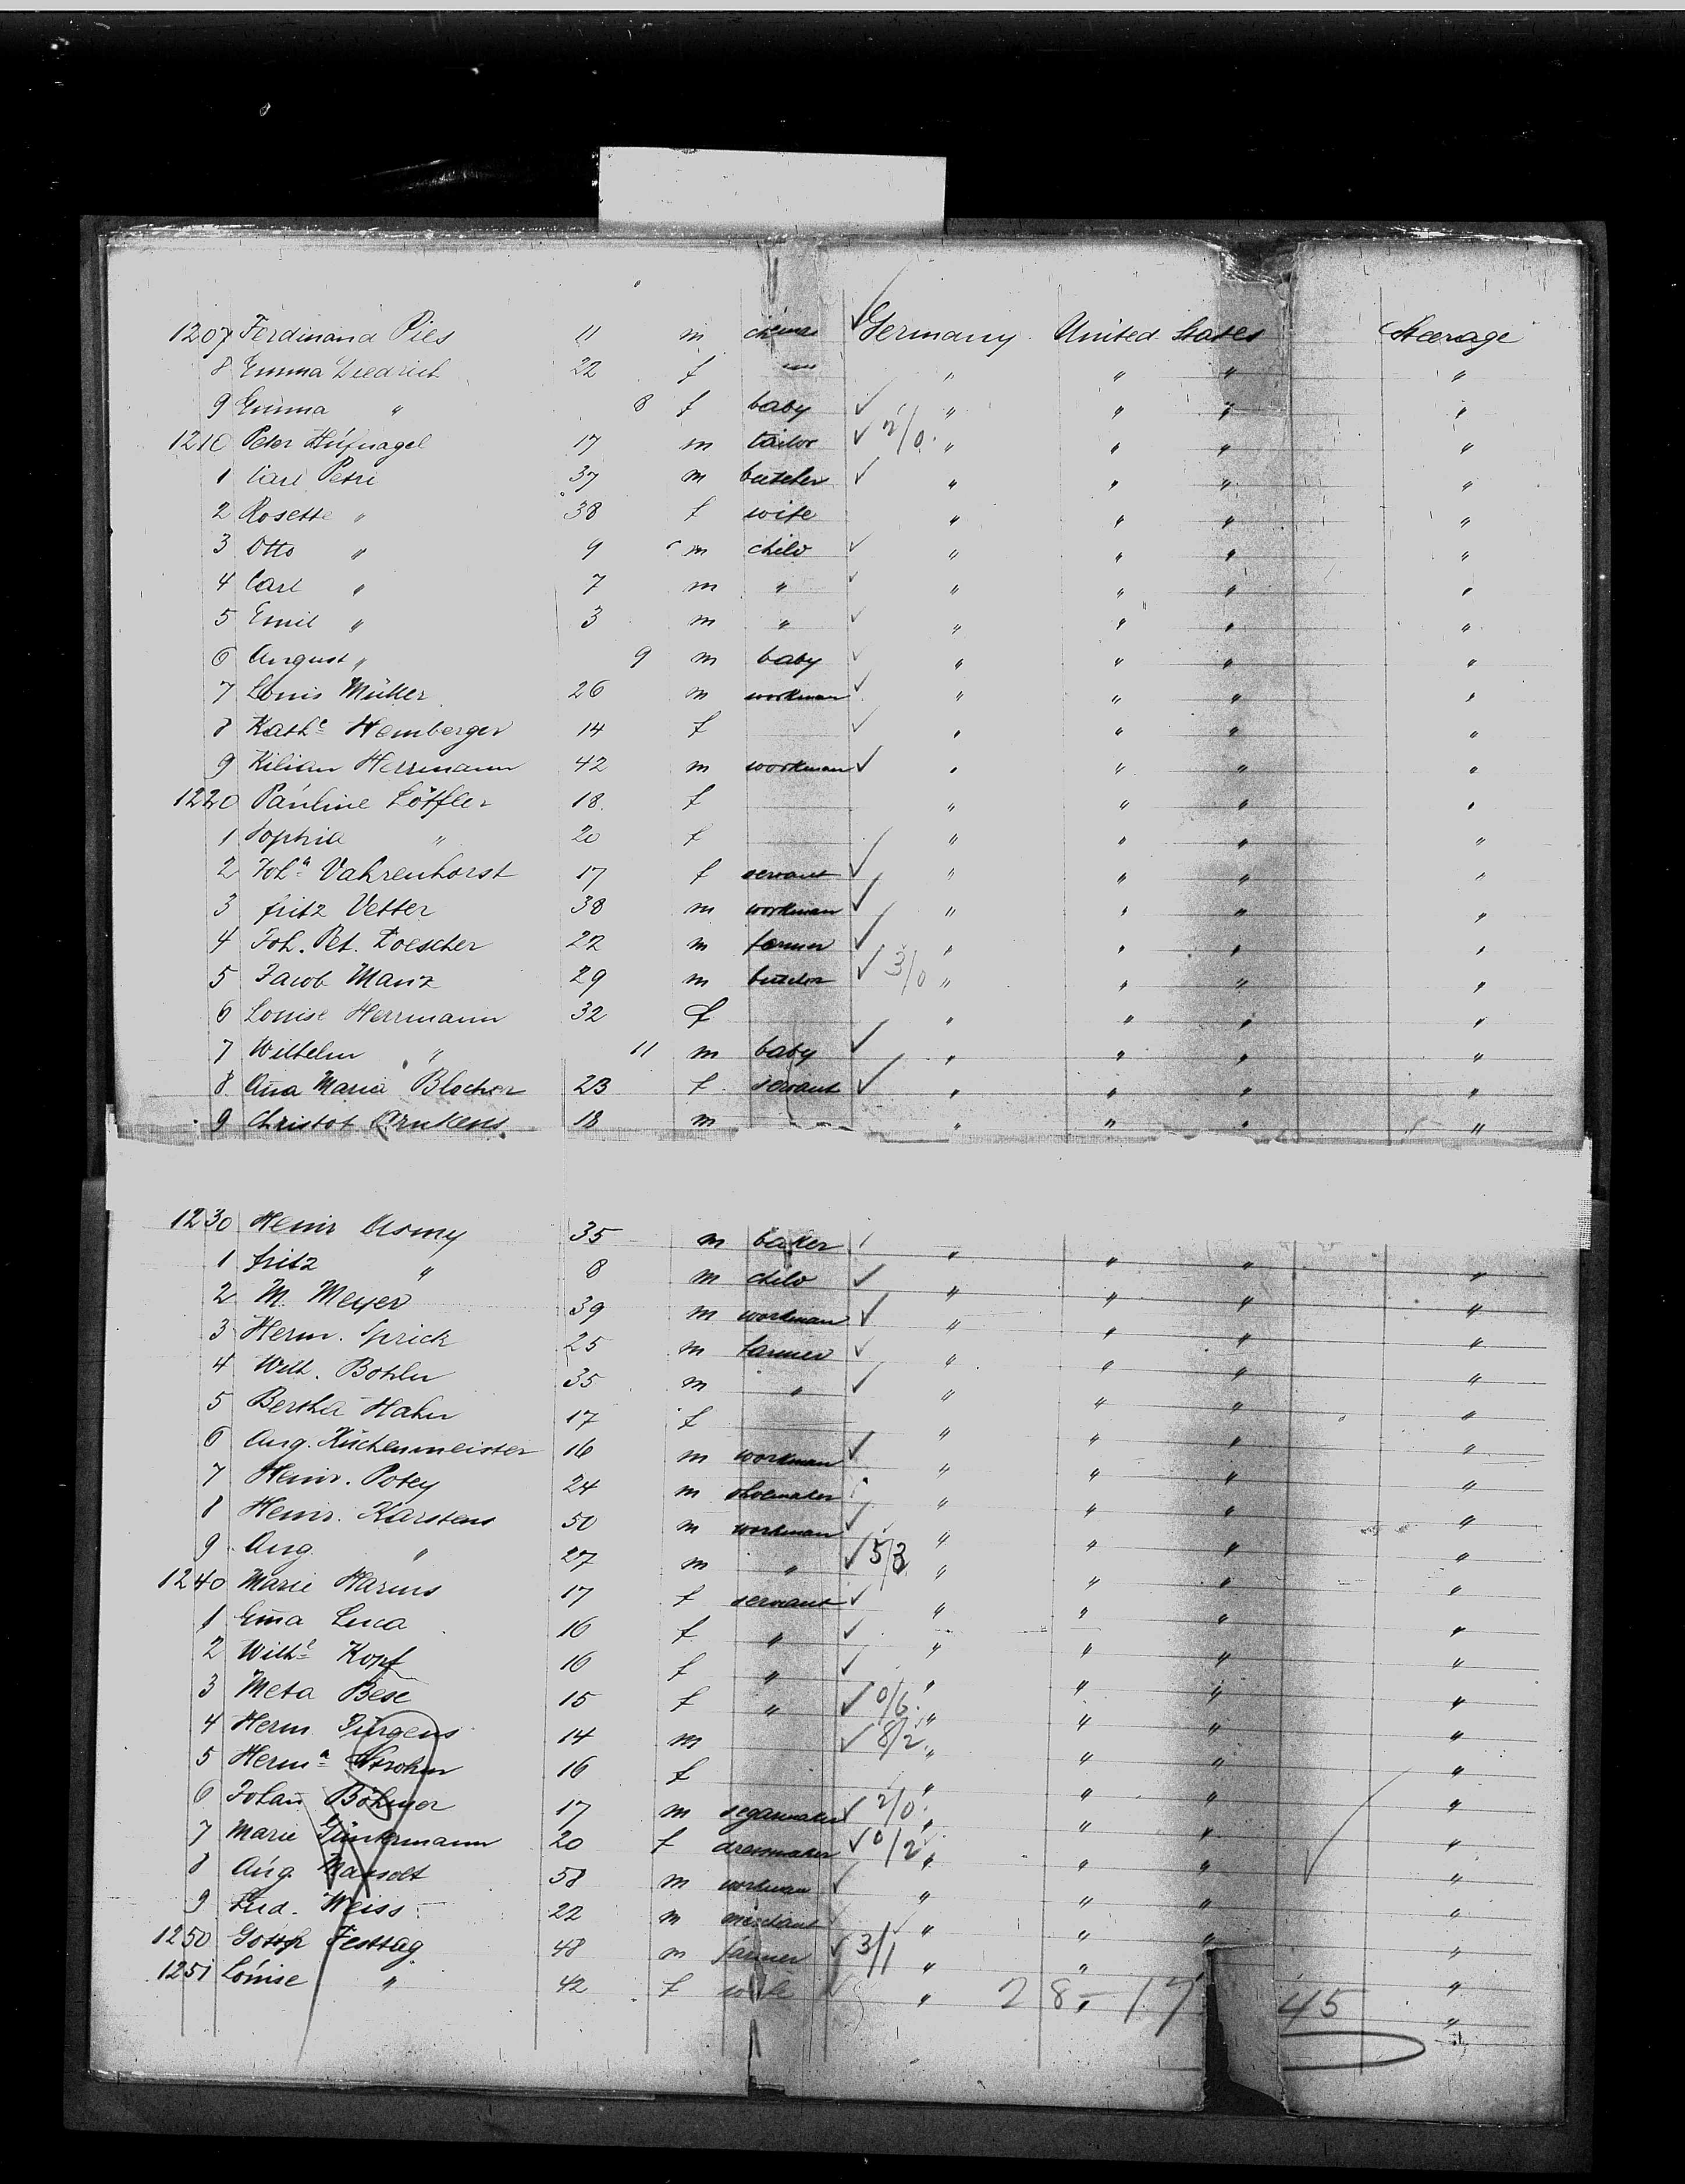 1207 Ferdinand Pies 11 m Germany United States Steerage
8 Emma Diedrich 22 f " " " "
9 Emma " 8 f baby " " " "
1210 Peter Hüfnagel 17 m tailor 2/0 " " " "
1 Carl Petri 37 m butcher " " " "
2 Rosette " 38 f wife " " " "
3 Otto " 9 m child " " " "
4 Carl " 7 m " " " " "
5 Emil " 3 m " " " " "
6 August " 9 m baby " " " "
7 Louis Müller 26 m workman " " " "
8 Kathe Hemberger 14 f " " " "
9 Kilian Herrmann 42 m workman " " " "
1220 Pauline Löffler 18 f " " " "
1 Sophia " 20 f " " " "
2 Joha Vahrenhorst 17 f servant " " " "
3 Fritz Vetter 38 m workman " " " "
4 Joh. Pet. Loescher 22 m farmer " " " "
5 Jacob Manz 29 m 3/0 " " " "
6 Louise Herrmann 32 f " " " "
7 Wilhelm " 11 m baby " " " "
8 Ana Maria Blocher 23 f servant " " " "
9 Christof Arnkens 18 m " " " "
1230 Heinr 35 m baker " " " "
1 Fritz " 8 m child " " " "
2 M. Meyer 39 m workman " " " "
3 Herm. Sprick 25 m farmer " " " "
4 Wilh. Bohler 35 m " " " " "
5 Bertha Hahn 17 f " " " "
6 Aug. Küchenmeister 16 m workman " " " "
7 Heinr. Potey 24 m shoemaker " " " "
8 Heinr. Karstens 50 m workman " " " "
9 Aug. " 27 m " 5/3 " " " "
1240 Marie Harms 17 f servant " " " "
1 Ema Luca 16 f " " " " "
2 Wilhe Kopf 16 f " " " " "
3 Meta Bese 15 f " 0/6 " " " "
4 Herm. Jürgens 14 m 8/2 " " " "
5 Herma Strohm 16 f " " " "
6 Johan Böhmer 17 m segarmaker 2/0 " " " "
7 Marie Günkermann 20 f dressmaker 0/2 " " " "
8 Aug. Marsolt 58 m workman " " " "
9 Lud. Weiss 22 m merchant " " " "
1250 Festtag 48 m farmer 3/1 " " " "
1251 Louise " 42 f wife " " "
28 - 17 45